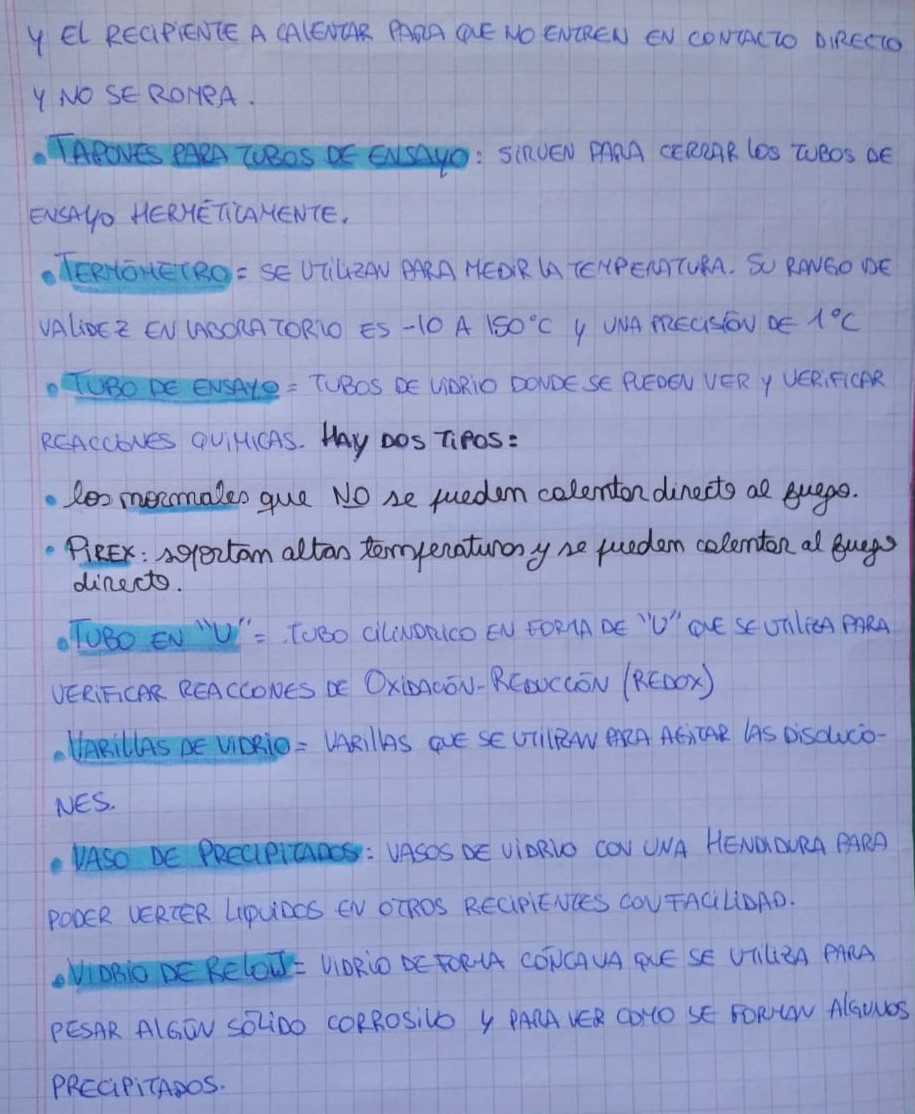 Y EL RECIPIENTE A CALENTAR PARA QUE NO ENTREN EN CONTACTO DIRECTO
Y NO SE ROMPA.
• TAPONES PARA TUBOS DE ENSAYO: SIRVEN PARA CERRAR LOS TUBOS DE
ENSAYO HERMÉTICAMENTE.
• TERMÓMETRO = SE UTILIZAN PARA MEDIR LA TEMPERATURA. SU RANGO DE
VALIDEZ EN LABORATORIO ES -10 A 150°C Y UNA PRECISIÓN DE 1°C
• TUBO DE ENSAYO = TUBOS DE VIDRIO DONDE SE PUEDEN VER Y VERIFICAR
REACCIONES QUÍMICAS. HAY DOS TIPOS:
• los normales que NO se pueden calentar directo al fuego.
• PIREX: soportan altas temperaturas y se pueden calentar al fuego
directo.
• TUBO EN "U" = TUBO CILINDRICO EN FORMA DE "U" QUE SE UTILIZA PARA
VERIFICAR REACCIONES DE OXIDACIÓN-REDUCCIÓN (REDOX)
• VARILLAS DE VIDRIO = VARILLAS QUE SE UTILIZAN PARA AGITAR LAS DISOLUCIO-
NES.
• VASO DE PRECIPITADOS: VASOS DE VIDRIO CON UNA HENDIDURA PARA
PODER VERTER LIQUIDOS EN OTROS RECIPIENTES CON FACILIDAD.
• VIDRIO DE RELOJ = VIDRIO DE FORMA CÓNCAVA QUE SE UTILIZA PARA
PESAR ALGÚN SÓLIDO CORROSIVO Y PARA VER COMO SE FORMAN ALGUNOS
PRECIPITADOS.